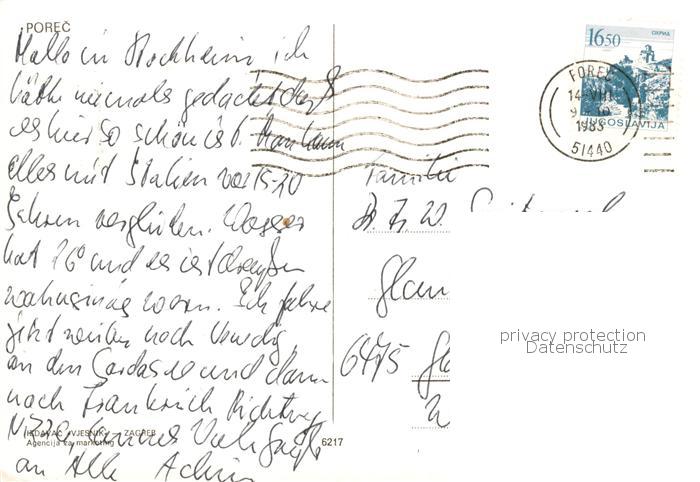 POREČ
Hallo in Stockheim ich
hätte niemals gedacht daß
es hier so schön ist. Man kann
alles mit Italien vor 15-20
Jahren vergleichen. Wasser
hat 26° und es ist draußen
wahnsinnig warm. Ich fahre
jetzt weiter nach Venedig,
an den Gardasee und dann
nach Frankreich Richtung
Nizza, Cannes Viele Grüße
an Alle Achim
IZDAVAČ »VJESNIK« — ZAGREB
Agencija za marketing
6217
16.50
OHRID
JUGOSLAVIJA
POREČ
14.VIII
1985
51440
Familie
Glau
6475
privacy protection
Datenschutz